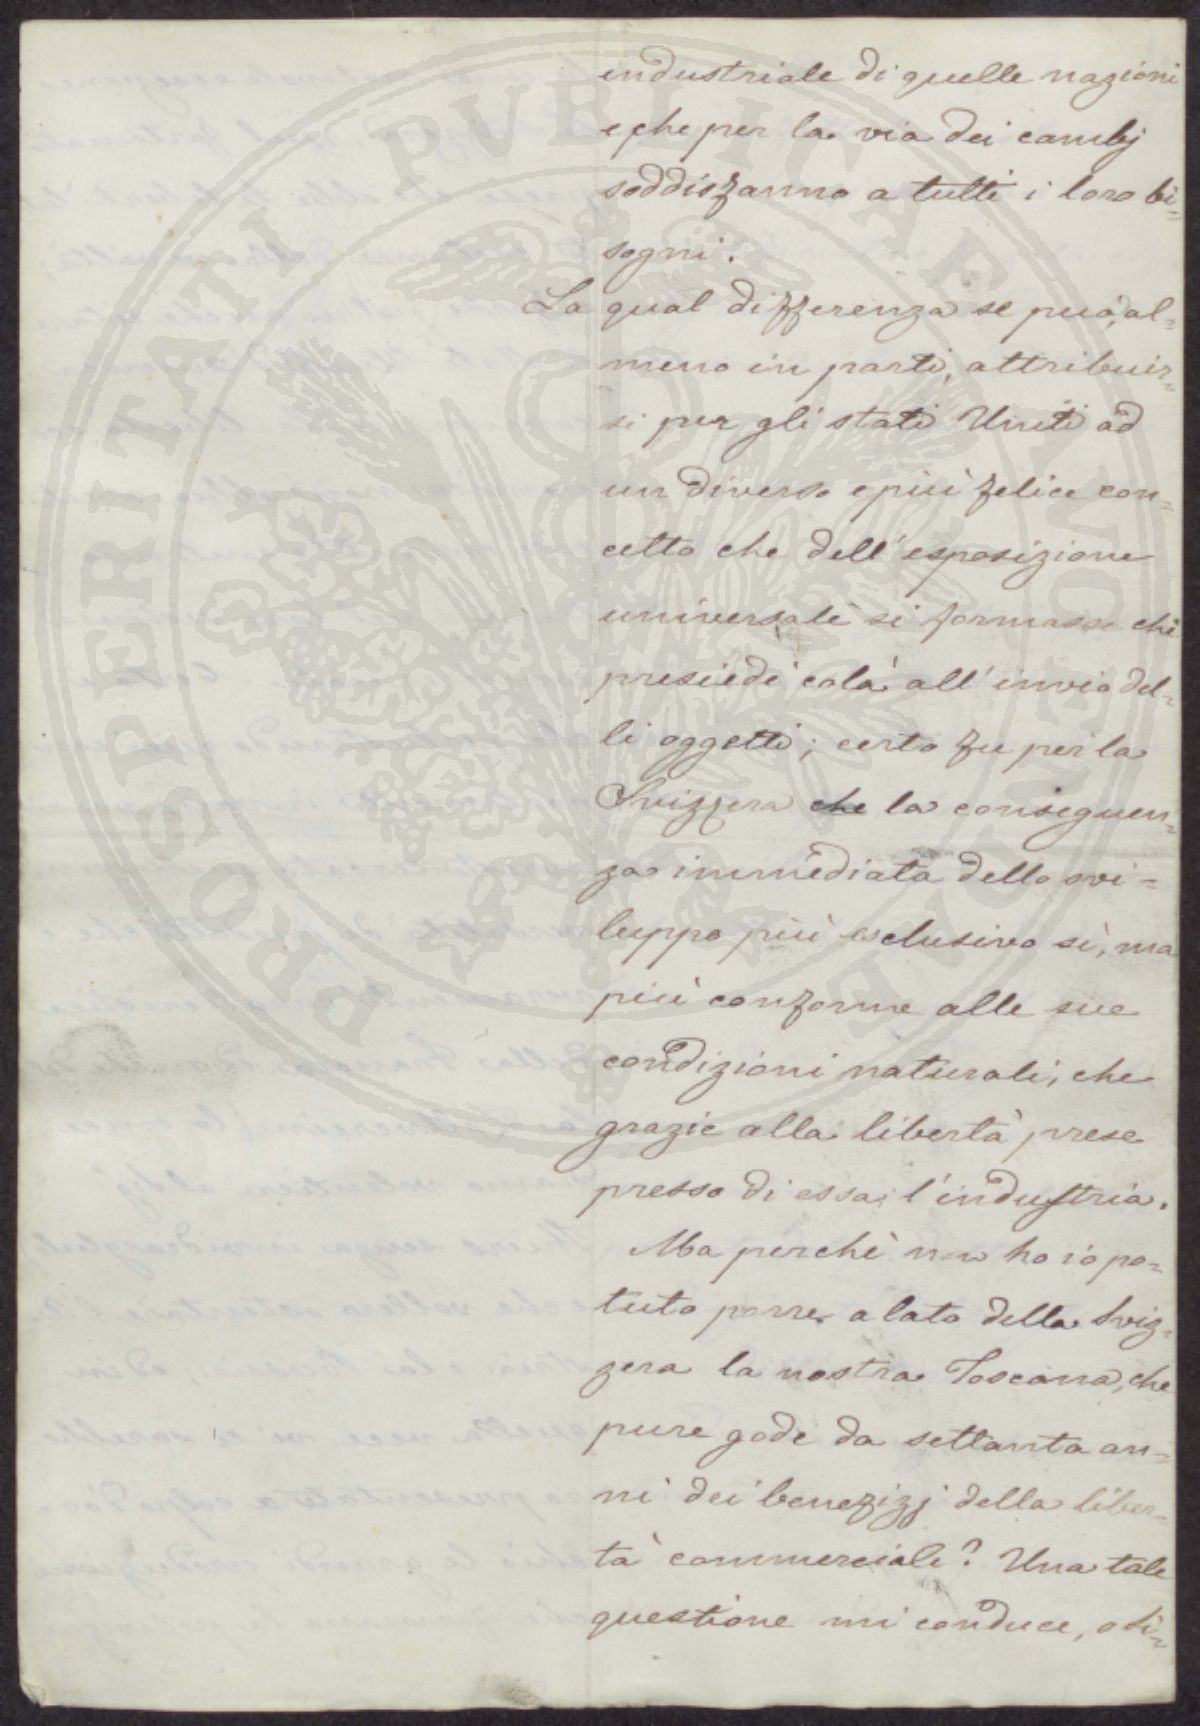 industriale di quelle nazioni
e che per la via dei cambj
soddisfanno a tutti i loro bi=
sogni.
La qual differenza se può, al=
meno in parti, attribuir=
si per gli stati Uniti ad
un diverso e più felice con=
cetto che dell'esposizione
universale si formasse chi
presiedè colà all'invio del=
li oggetti; certo fu per la
Svizzera che la conseguen=
za immediata dello svi=
luppo più esclusivo sì, ma
più conforme alle sue
condizioni naturali, che
grazie alla libertà prese
presso di essa l'industria.
Ma perchè non ho io po=
tuto porre a lato della Sviz=
zera la nostra Toscana, che
pure gode da settanta an=
ni dei benefizj della liber=
tà commerciale? Una tale
questione mi conduce, o Si=
PROSPERITATI PVBLICAE AVGENDAE